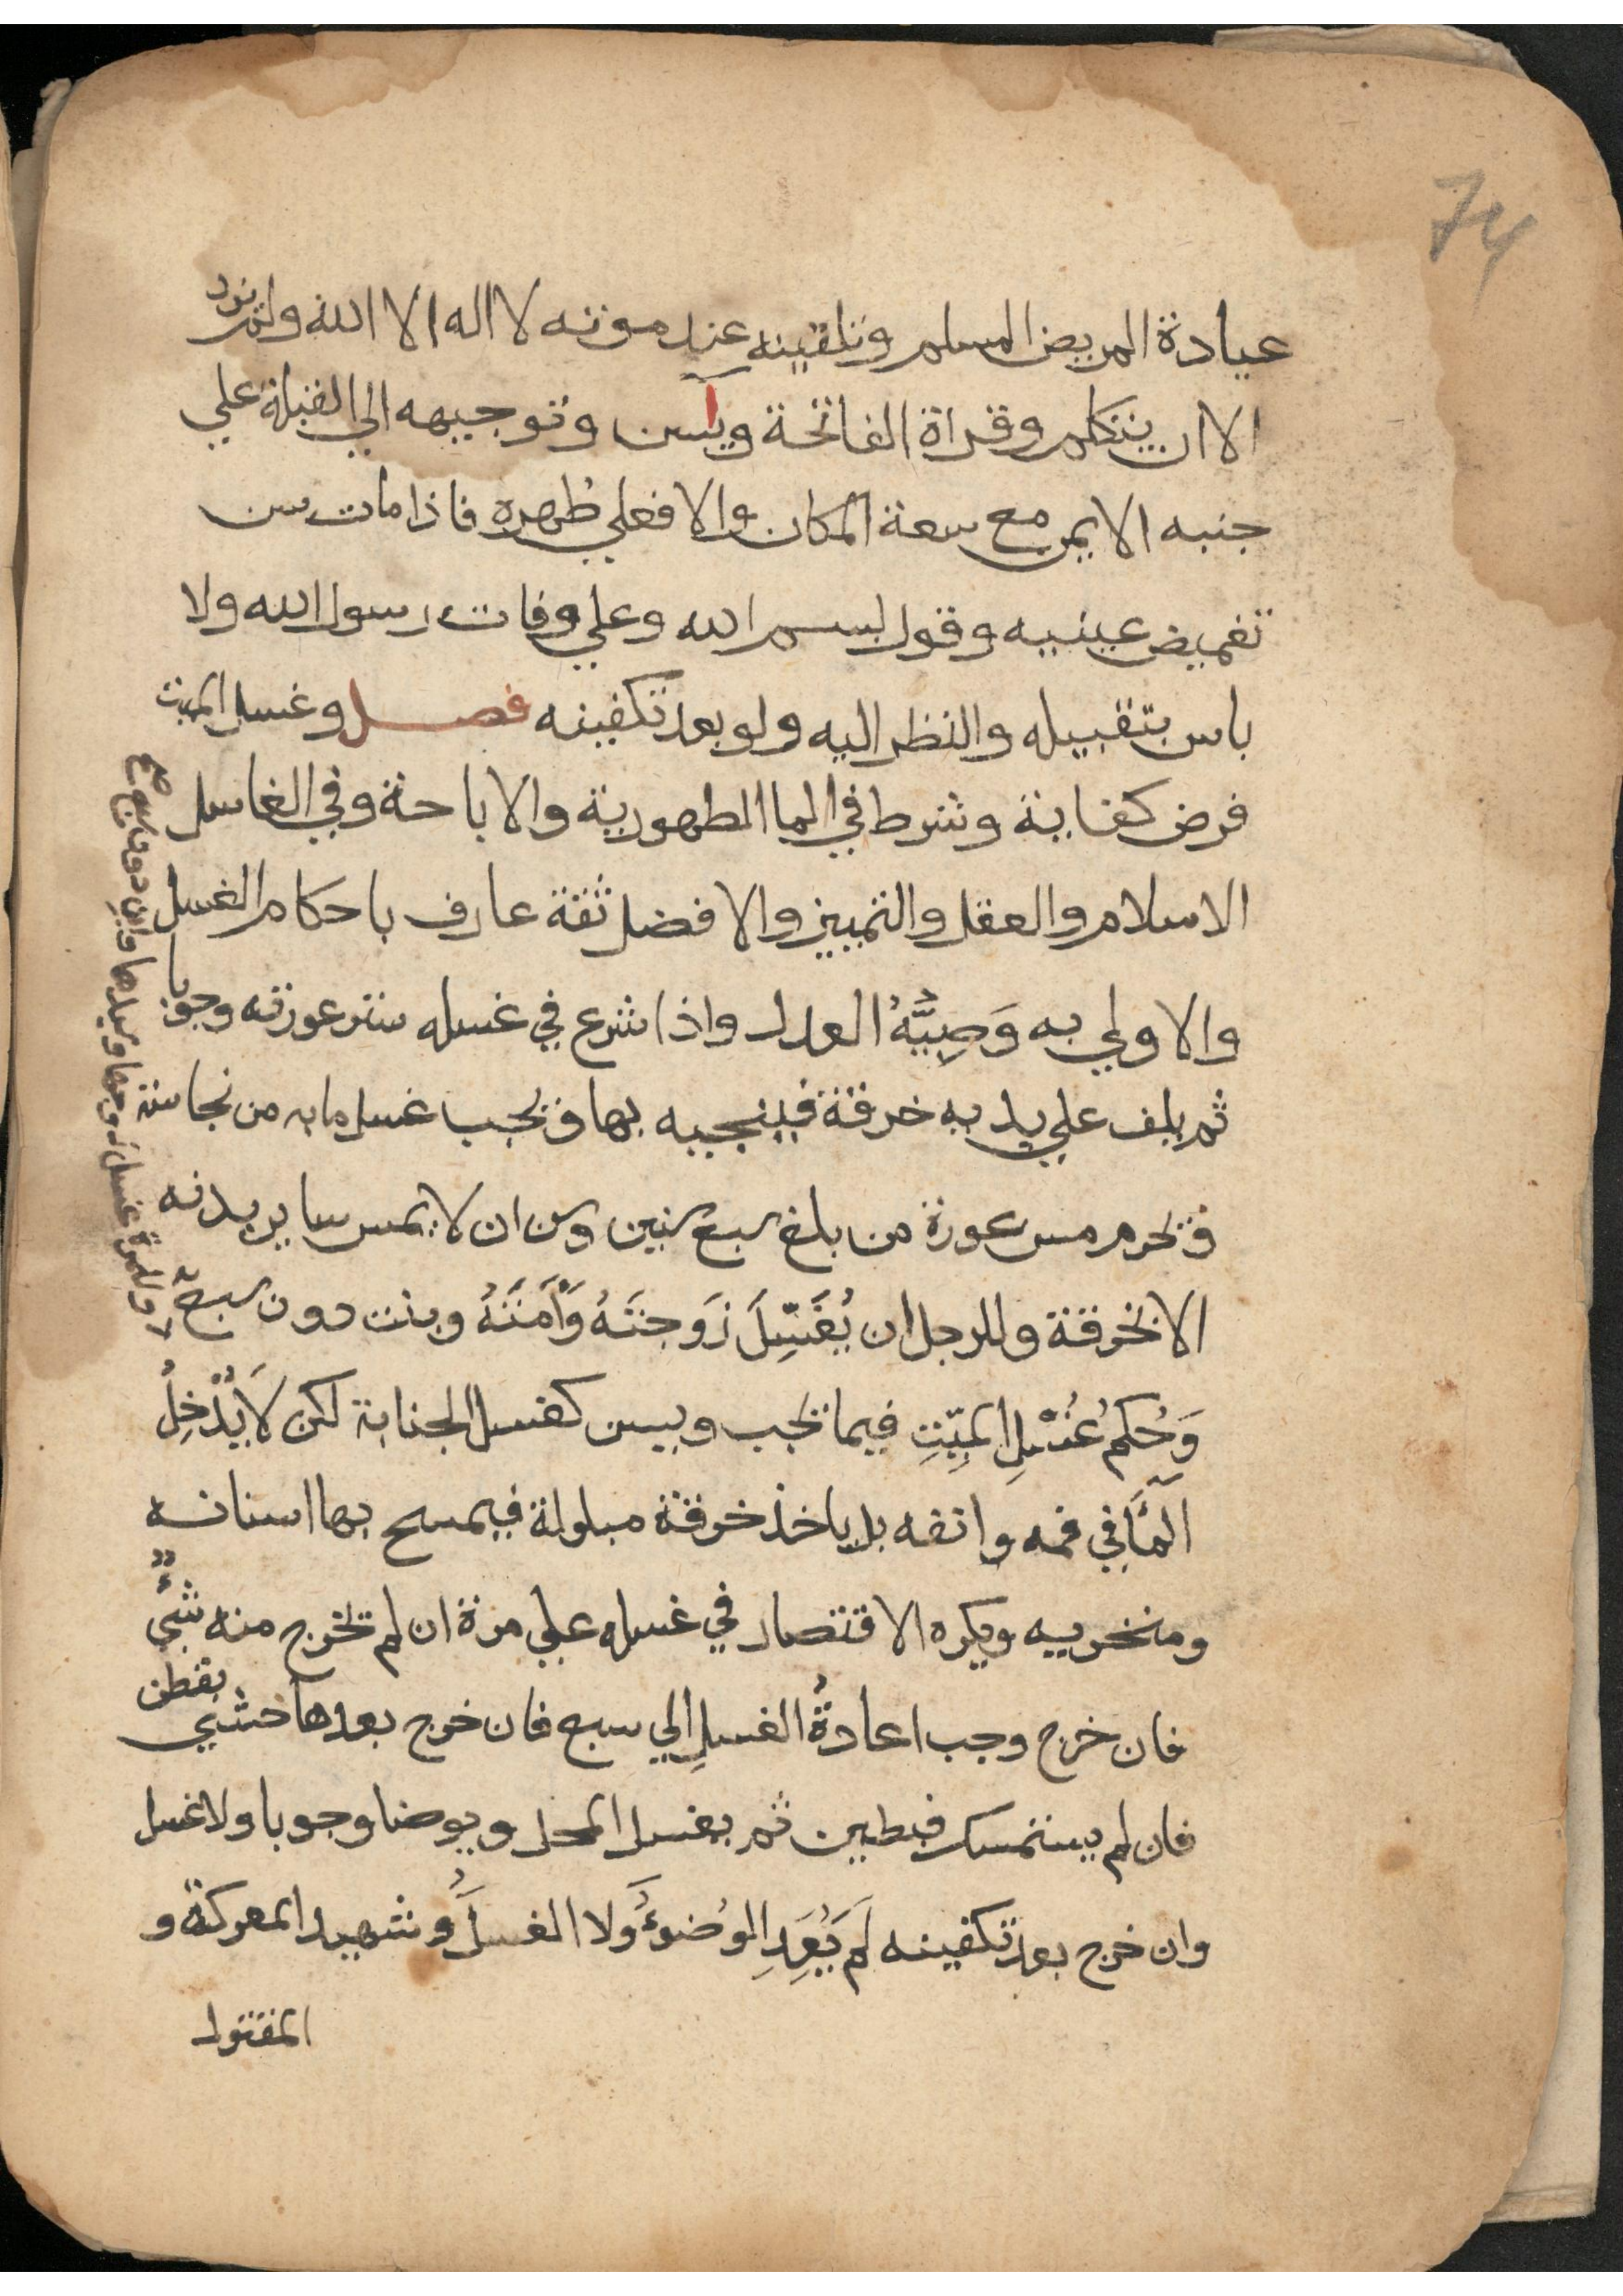 74
عيادة المريض المسلم وتلقينه عند موته لا اله الا الله ولم يزد
الا ان يتكلم وقراة الفاتحة ويس وتوجيهه الي القبلة علي
جنبه الايمن مع سعة المكان والا فعلي ظهره فاذا مات سن
تغميض عينيه وقول بسم الله وعلي وفات رسول الله ولا
باس بتقبيله والنظر اليه ولو بعد تكفينه فصل وغسل الميت
فرض كفاية وشرط في الما الطهورية والاباحة وفي الغاسل
الاسلام والعقل والتمييز والافضل ثقة عارف باحكام الغسل
والاولي به وَصِيُّهُ العدل واذا شرع في غسله ستر عورته وجوبا
ثم يلف علي يديه خرقة فينجيه بها ويجب غسل ما به من نجاسة
ويحرم مس عورة من بلغ سبع سنين وسن ان لا يمس ساير بدنه
الا بخرقة وللرجل ان يُغَسِّلَ زَوجتَهُ وَأَمَتَهُ وبنت دون سبع
وللمرأة غسل زوجها وسيدها وابن دون سبع صح
وَحُكم غُسْلِ الميِّتِ فيما يجب ويسن كغسل الجنابة لكن لَا يُدْخِلُ
المآء في فمه وانفه بل ياخذ خرقة مبلولة فيمسح بها اسنانه
ومنخريه ويكره الاقتصار في غسله علي مرة ان لم يخرج منه شيءٌ
فان خرج وجب اعادةُ الغسلِ الي سبع فان خرج بعدها حشي بقطن
فان لم يستمسك فبطين ثم يغسل المحل ويوضا وجوبا ولا غسل
وان خرج بعد تكفينه لَم يُعَدِ الوُضوءُ ولا الغسلُ وشهيد المعركة و
المقتول